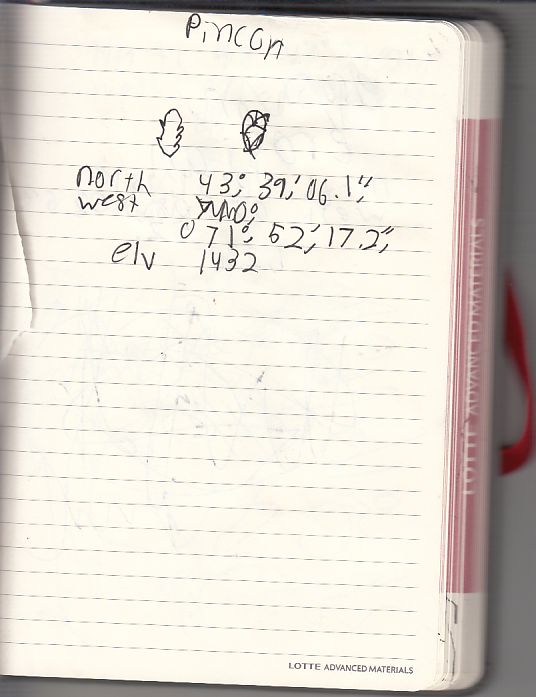 Pincon
north 43°, 39,' 06.1,"
west
071°, 52,' 17.2,"
elv 1432
LOTTE ADVANCED MATERIALS
LOTTE ADVANCED MATERIALS